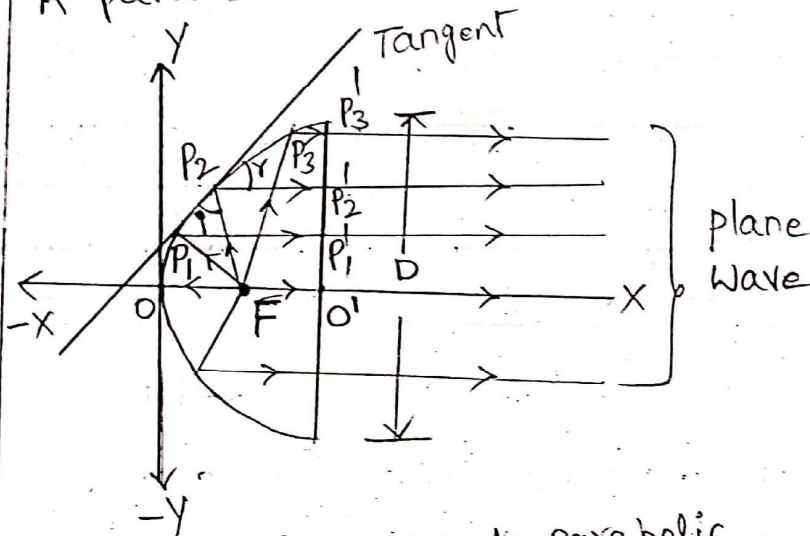 Y
Tangent
P3'
P2
P3
r
P2'
i
P1
P1'
D
plane
wave
-X
O
F
O'
X
-Y
parabolic